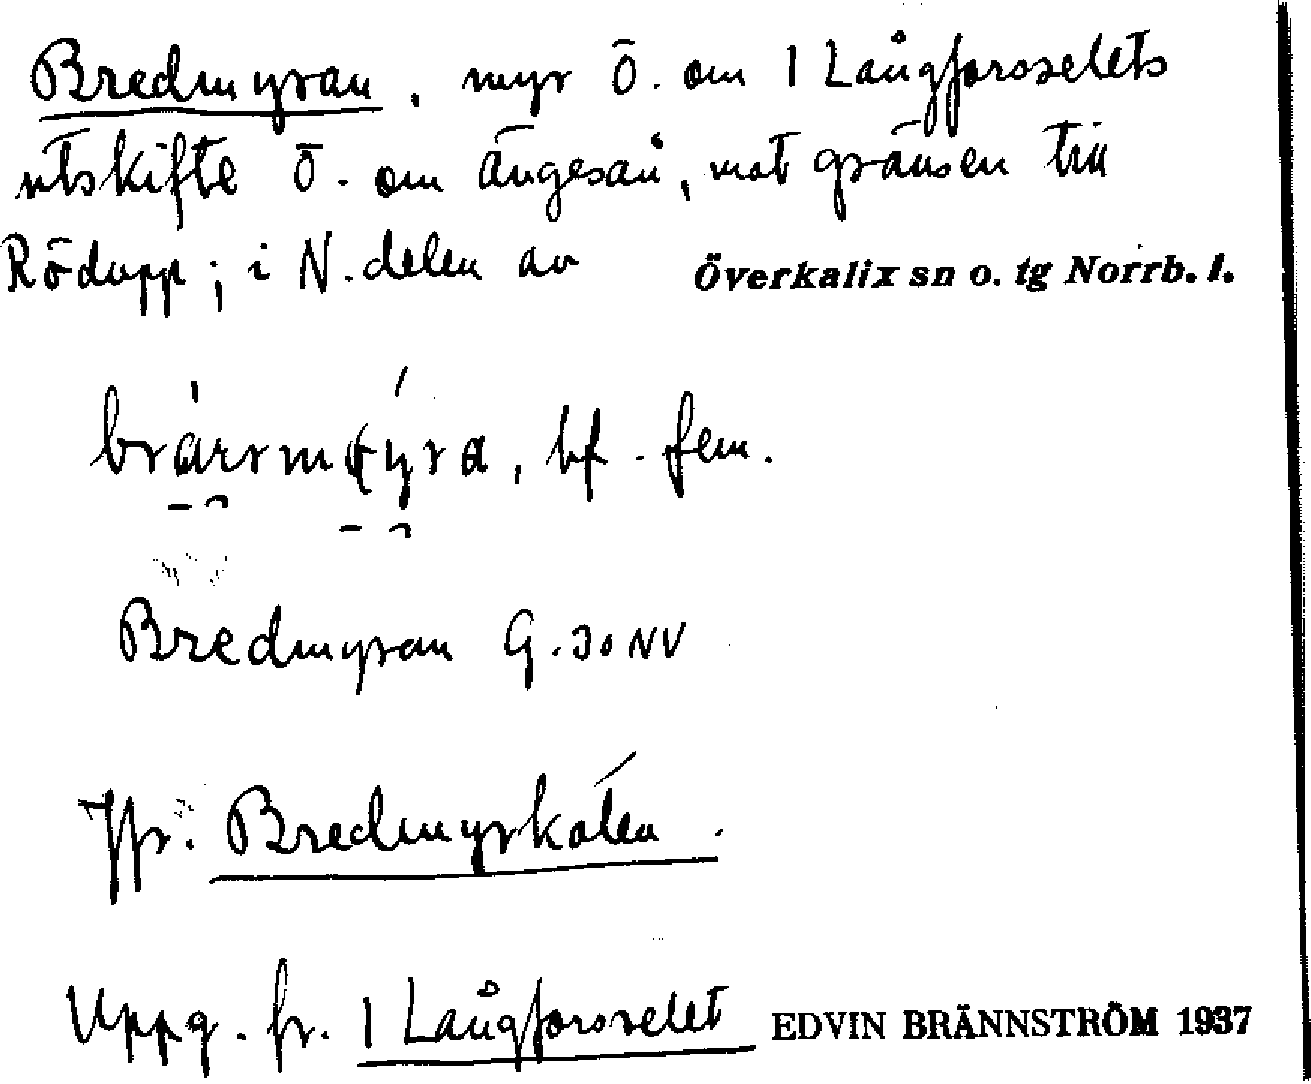 Bredmyran, myr Ö. om 1 Långforsselets
utskifte Ö. om Ängesån, mot gränsen till
Rödupp; i N. delen av Överkalix sn o. tg Norrb. l.
bf. fem.
Bredmyran G. 30 NV
Jfr. Bredmyrkåten.
Uppg. fr. 1 Långforsselet EDVIN BRÄNNSTRÖM 1937